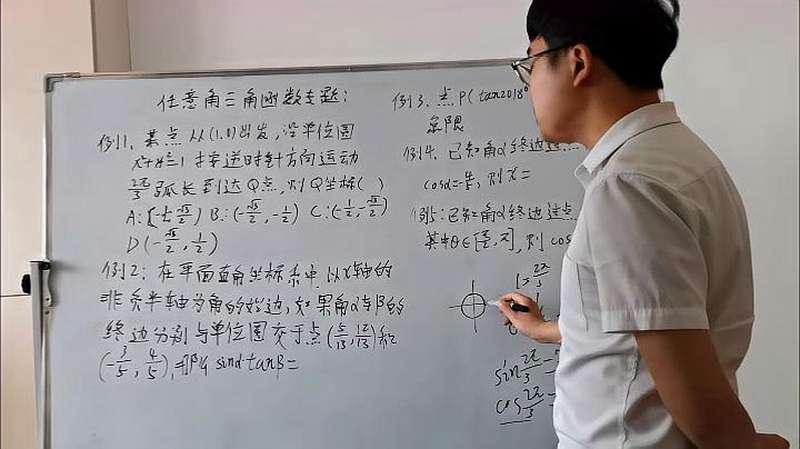 任意角三角函数专题:
例1、某点从(1,0)出发,沿单位圆
x²+y²=1 按逆时针方向运动
2π/3 弧长到达Q点,则Q坐标( )
A:(-1/2, √3/2) B:(-√3/2, -1/2) C:(-1/2, -√3/2)
D(-√3/2, 1/2)
例2:在平面直角坐标系中,以x轴的
非负半轴为角的始边,如果角α与β的
终边分别与单位圆交于点(5/13, 12/13)和
(-3/5, 4/5),那么 sinα·tanβ=
例3、点P(tan2018°
象限
例4、已知角α终边
cosα= 则x=
例5:已知角α终边过点
其中θ∈[ ,π],则 cos
l=2π/3
sin2π/3=
cos2π/3=